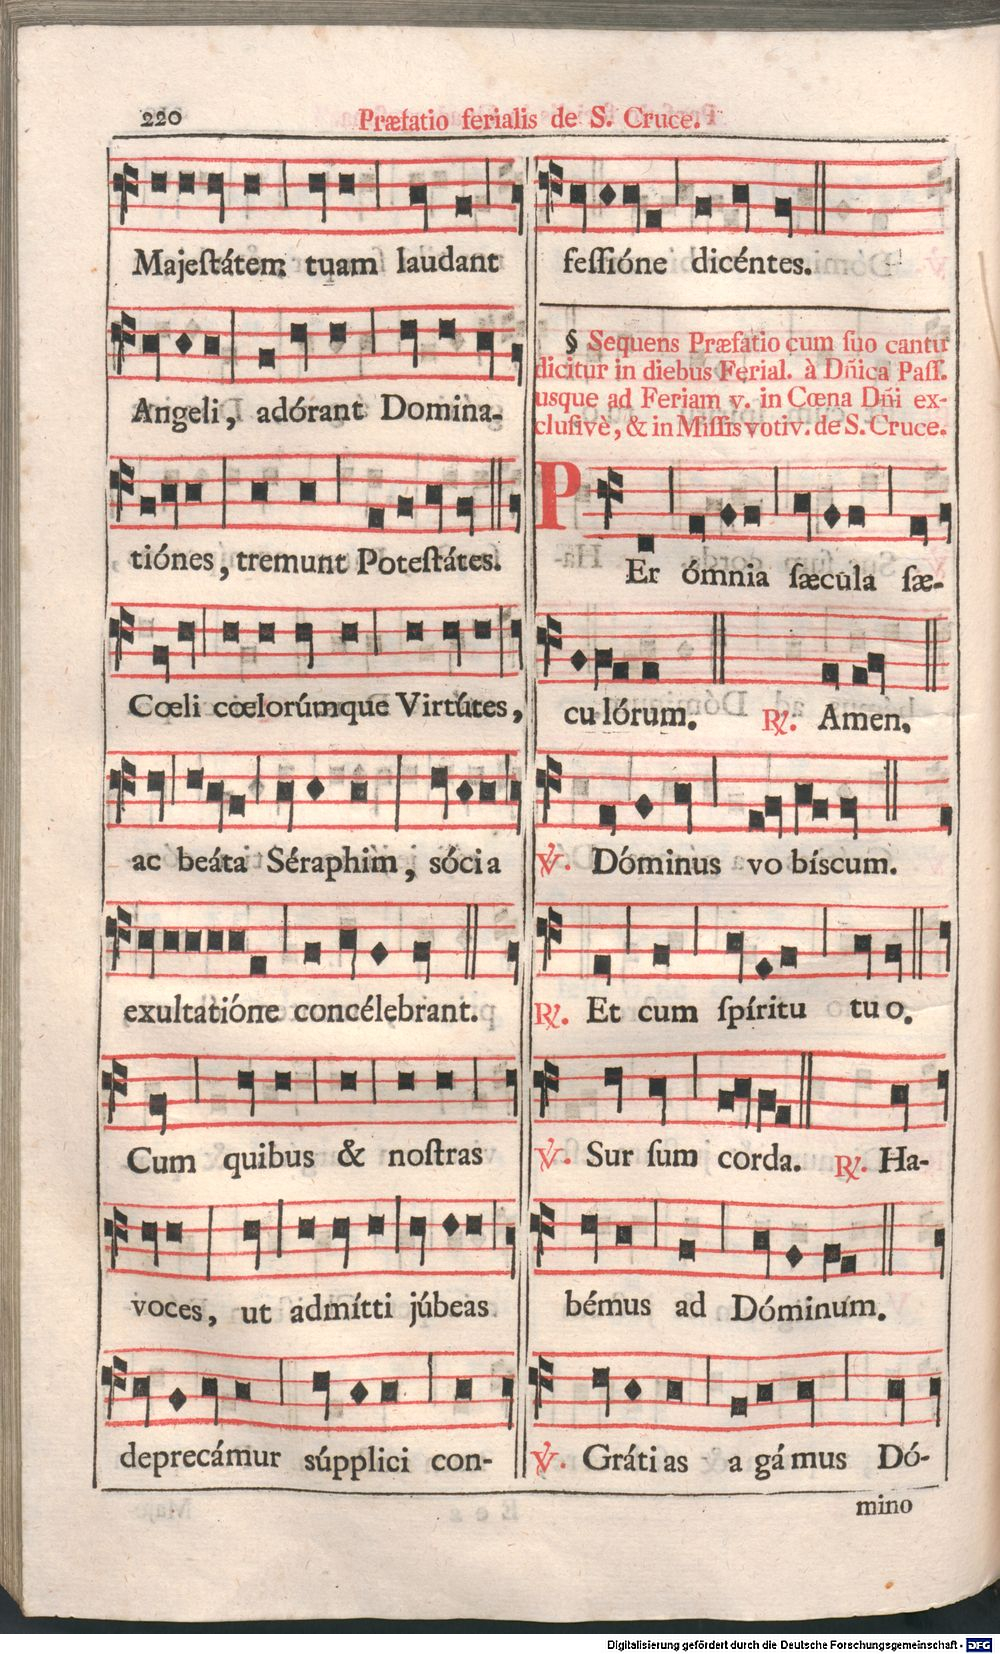 220
Præfatio ferialis de S. Cruce.
Majeſtátem tuam laudant
Angeli, adórant Domina-
tiónes, tremunt Poteſtátes.
Cœli cœlorúmque Virtútes,
ac beáta Séraphim, sócia
exultatióne concélebrant.
Cum quibus & noſtras
voces, ut admítti júbeas
deprecámur súpplici con-
feſſióne dicéntes.
§ Sequens Præfatio cum ſuo cantu
dicitur in diebus Ferial. à Dñica Paſſ.
usque ad Feriam v. in Cœna Dñi ex-
cluſivè, & in Miſſis votiv. de S. Cruce.
PEr ómnia ſæcula ſæ-
culórum. ℟. Amen.
℣. Dóminus vo bíscum.
℟. Et cum ſpíritu tu o.
℣. Sur ſum corda. ℟. Ha-
bémus ad Dóminum.
℣. Gráti as a gá mus Dó-
mino
Digitalisierung gefördert durch die Deutsche Forschungsgemeinschaft - DFG